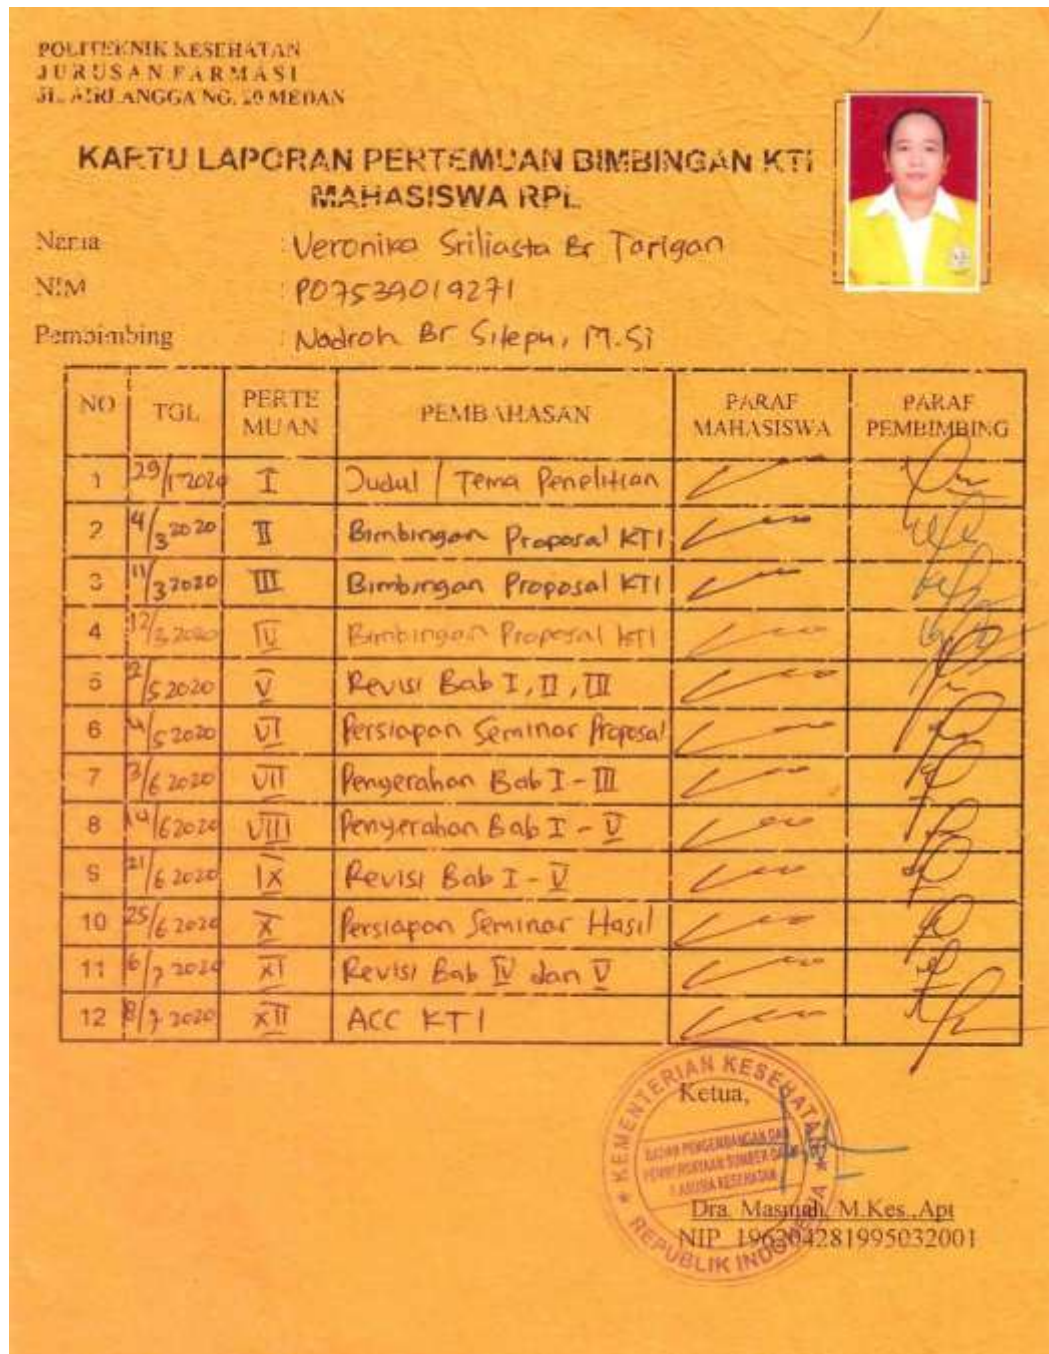 POLITEKNIK KESEHATAN
JURUSAN FARMASI
JL. AIRLANGGA NO. 20 MEDAN
KARTU LAPORAN PERTEMUAN BIMBINGAN KTI
MAHASISWA RPL
Nama : Veronika Sriliasta Br Tarigan
NIM : P07539019271
Pembimbing : Nadroh Br Sitepu, M.Si
NO TGL PERTEMUAN PEMBAHASAN PARAF MAHASISWA PARAF PEMBIMBING
1 29/1-2020 I Judul / Tema Penelitian
2 4/3 2020 II Bimbingan Proposal KTI
3 11/3 2020 III Bimbingan Proposal KTI
4 12/3 2020 IV Bimbingan Proposal KTI
5 2/5 2020 V Revisi Bab I, II, III
6 4/5 2020 VI Persiapan Seminar Proposal
7 3/6 2020 VII Penyerahan Bab I - III
8 14/6 2020 VIII Penyerahan Bab I - V
9 21/6 2020 IX Revisi Bab I - V
10 25/6 2020 X Persiapan Seminar Hasil
11 6/7 2020 XI Revisi Bab IV dan V
12 8/7 2020 XII ACC KTI
KEMENTERIAN KESEHATAN
REPUBLIK INDONESIA
BADAN PENGEMBANGAN DAN
PEMBERDAYAAN SUMBER DAYA
MANUSIA KESEHATAN
Ketua,
Dra. Masniah, M.Kes.,Apt
NIP 196204281995032001